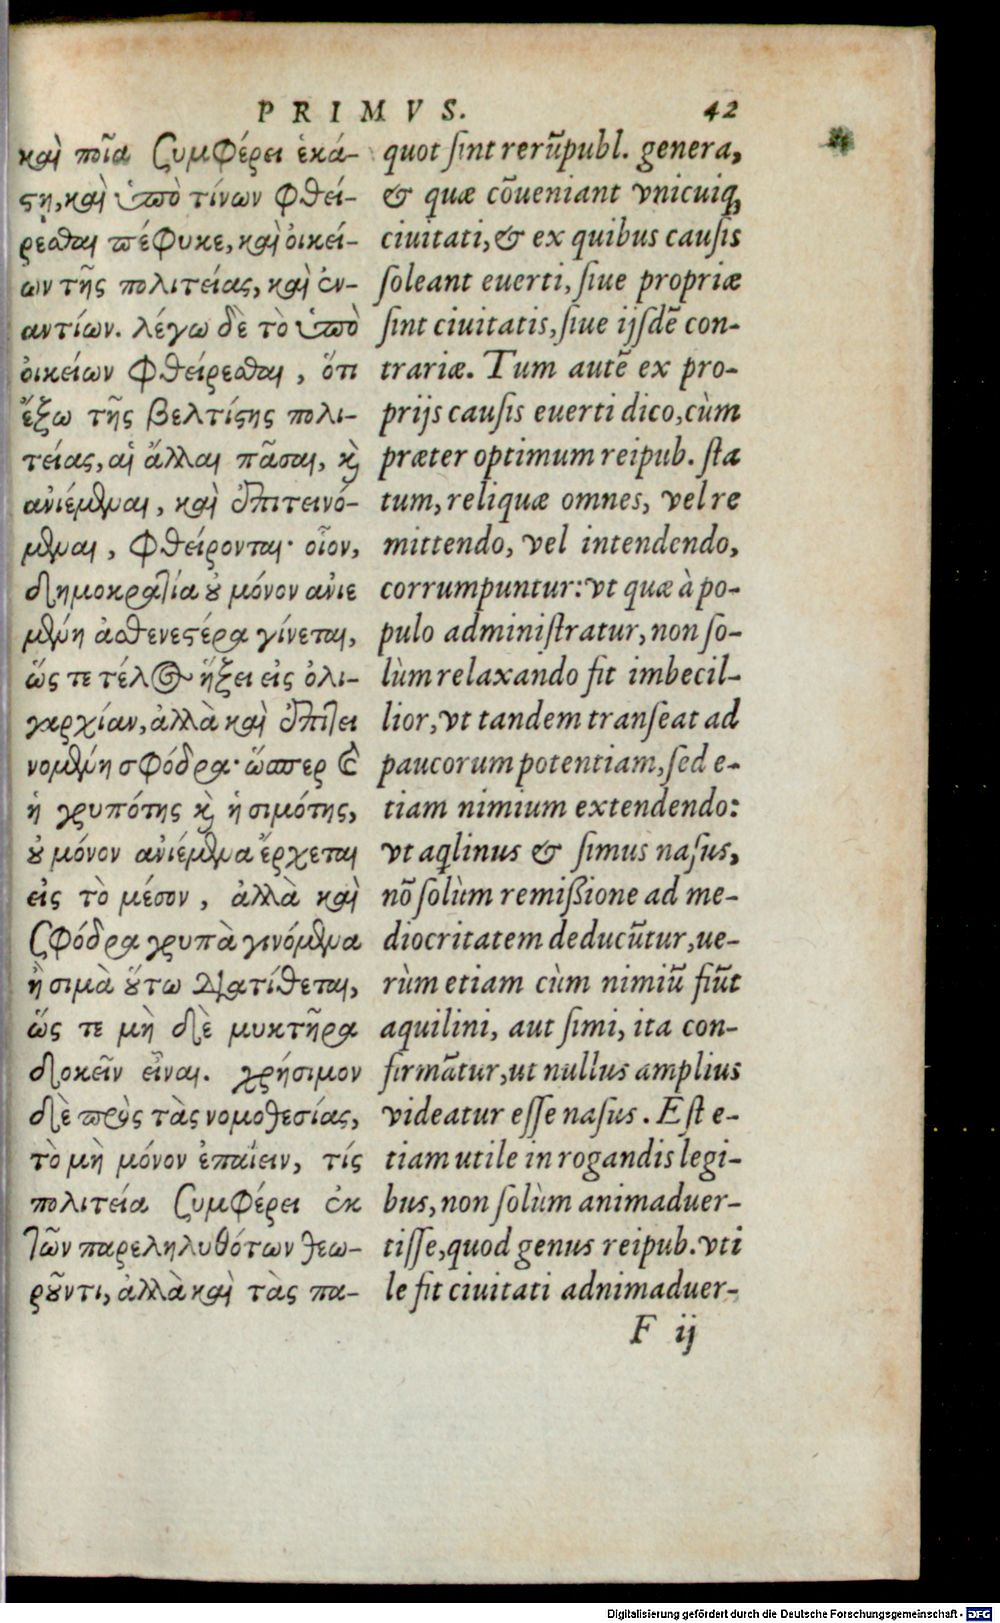 PRIMVS. 42
καὶ ποῖα συμφέρει ἑκά-
στῃ, καὶ ὑπὸ τίνων φθεί-
ρεσθαι πέφυκε, καὶ οἰκεί-
ων τῆς πολιτείας, καὶ ἐν-
αντίων. λέγω δὲ τὸ ὑπὸ
οἰκείων φθείρεσθαι, ὅτι
ἔξω τῆς βελτίστης πολι-
τείας, αἱ ἄλλαι πᾶσαι, καὶ
ἀνιέμεναι, καὶ ἐπιτεινό-
μεναι, φθείρονται· οἷον,
δημοκρατία οὐ μόνον ἀνιε
μένη ἀσθενεστέρα γίνεται,
ὥς τε τέλος ἥξει εἰς ὀλι-
γαρχίαν, ἀλλὰ καὶ ἐπιτει
νομένη σφόδρα· ὥσπερ καὶ
ἡ γρυπότης καὶ ἡ σιμότης,
οὐ μόνον ἀνιέμενα ἔρχεται
εἰς τὸ μέσον, ἀλλὰ καὶ
σφόδρα γρυπὰ γινόμενα
ἢ σιμὰ οὕτω διατίθεται,
ὥς τε μὴ δὲ μυκτῆρα
δοκεῖν εἶναι. χρήσιμον
δὲ πρὸς τὰς νομοθεσίας,
τὸ μὴ μόνον ἐπαΐειν, τίς
πολιτεία συμφέρει ἐκ
τῶν παρεληλυθότων θεω-
ροῦντι, ἀλλὰ καὶ τὰς πα-
quot sint rerũpubl. genera,
& quæ cõueniant vnicuiq;
ciuitati, & ex quibus causis
soleant euerti, siue propriæ
sint ciuitatis, siue ijsdẽ con-
trariæ. Tum autẽ ex pro-
prijs causis euerti dico, cùm
præter optimum reipub. sta
tum, reliquæ omnes, vel re
mittendo, vel intendendo,
corrumpuntur: vt quæ à po-
pulo administratur, non so-
lùm relaxando fit imbecil-
lior, vt tandem transeat ad
paucorum potentiam, sed e-
tiam nimium extendendo:
vt aq̃linus & simus nasus,
nõ solùm remißione ad me-
diocritatem deducũtur, ue-
rùm etiam cùm nimiũ fiũt
aquilini, aut simi, ita con-
firmãtur, ut nullus amplius
videatur esse nasus. Est e-
tiam utile in rogandis legi-
bus, non solùm animaduer-
tisse, quod genus reipub. vti
le sit ciuitati adnimaduer-
F ij
Digitalisierung gefördert durch die Deutsche Forschungsgemeinschaft - DFG